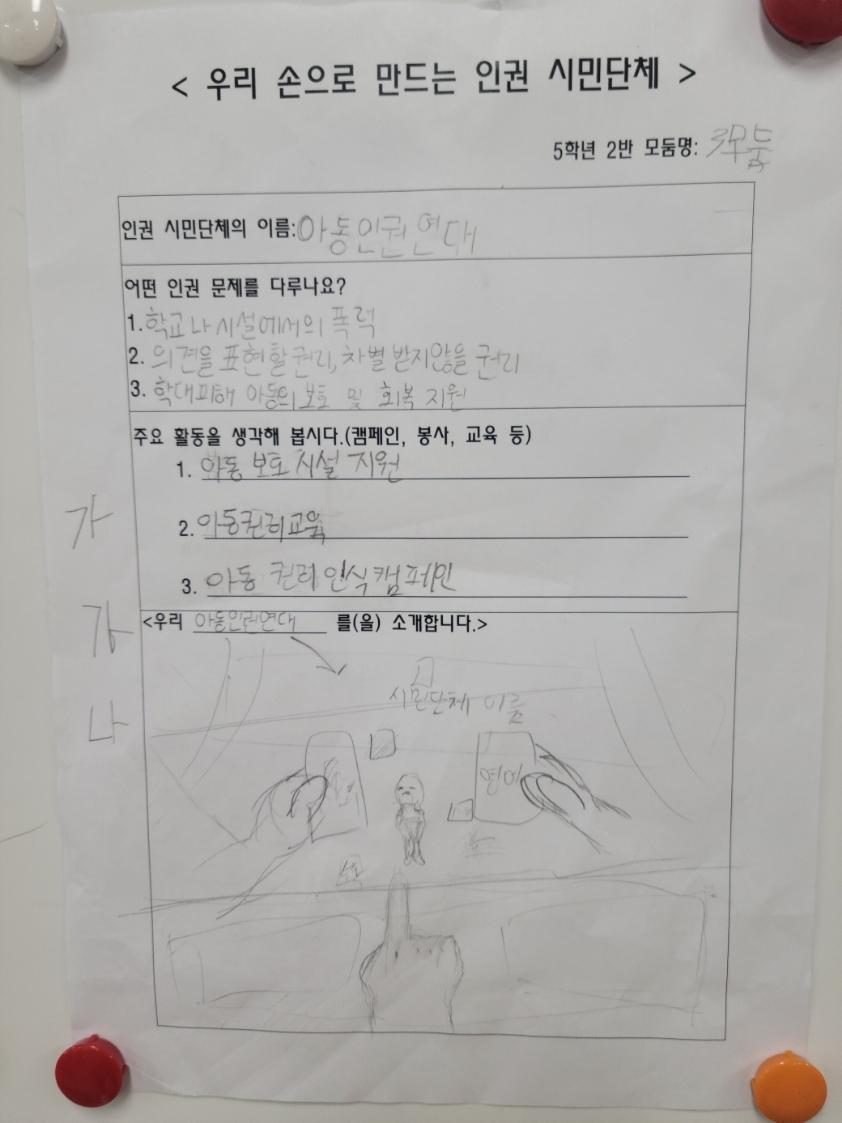 < 우리 손으로 만드는 인권 시민단체 >
5학년 2반 모둠명: 3모둠
인권 시민단체의 이름:아동인권연대
어떤 인권 문제를 다루나요?
1.학교나 시설에서의 폭력
2. 의견을 표현할권리, 차별 받지않을 권리
3. 학대피해 아동의 보호 및 회복 지원
주요 활동을 생각해 봅시다.(캠페인, 봉사, 교육 등)
1. 아동 보호 시설 지원
가
2. 아동권리교육
3. 아동 권리 인식 캠페인
가
<우리 아동인권연대 를(을) 소개합니다.>
시민단체 이름
나